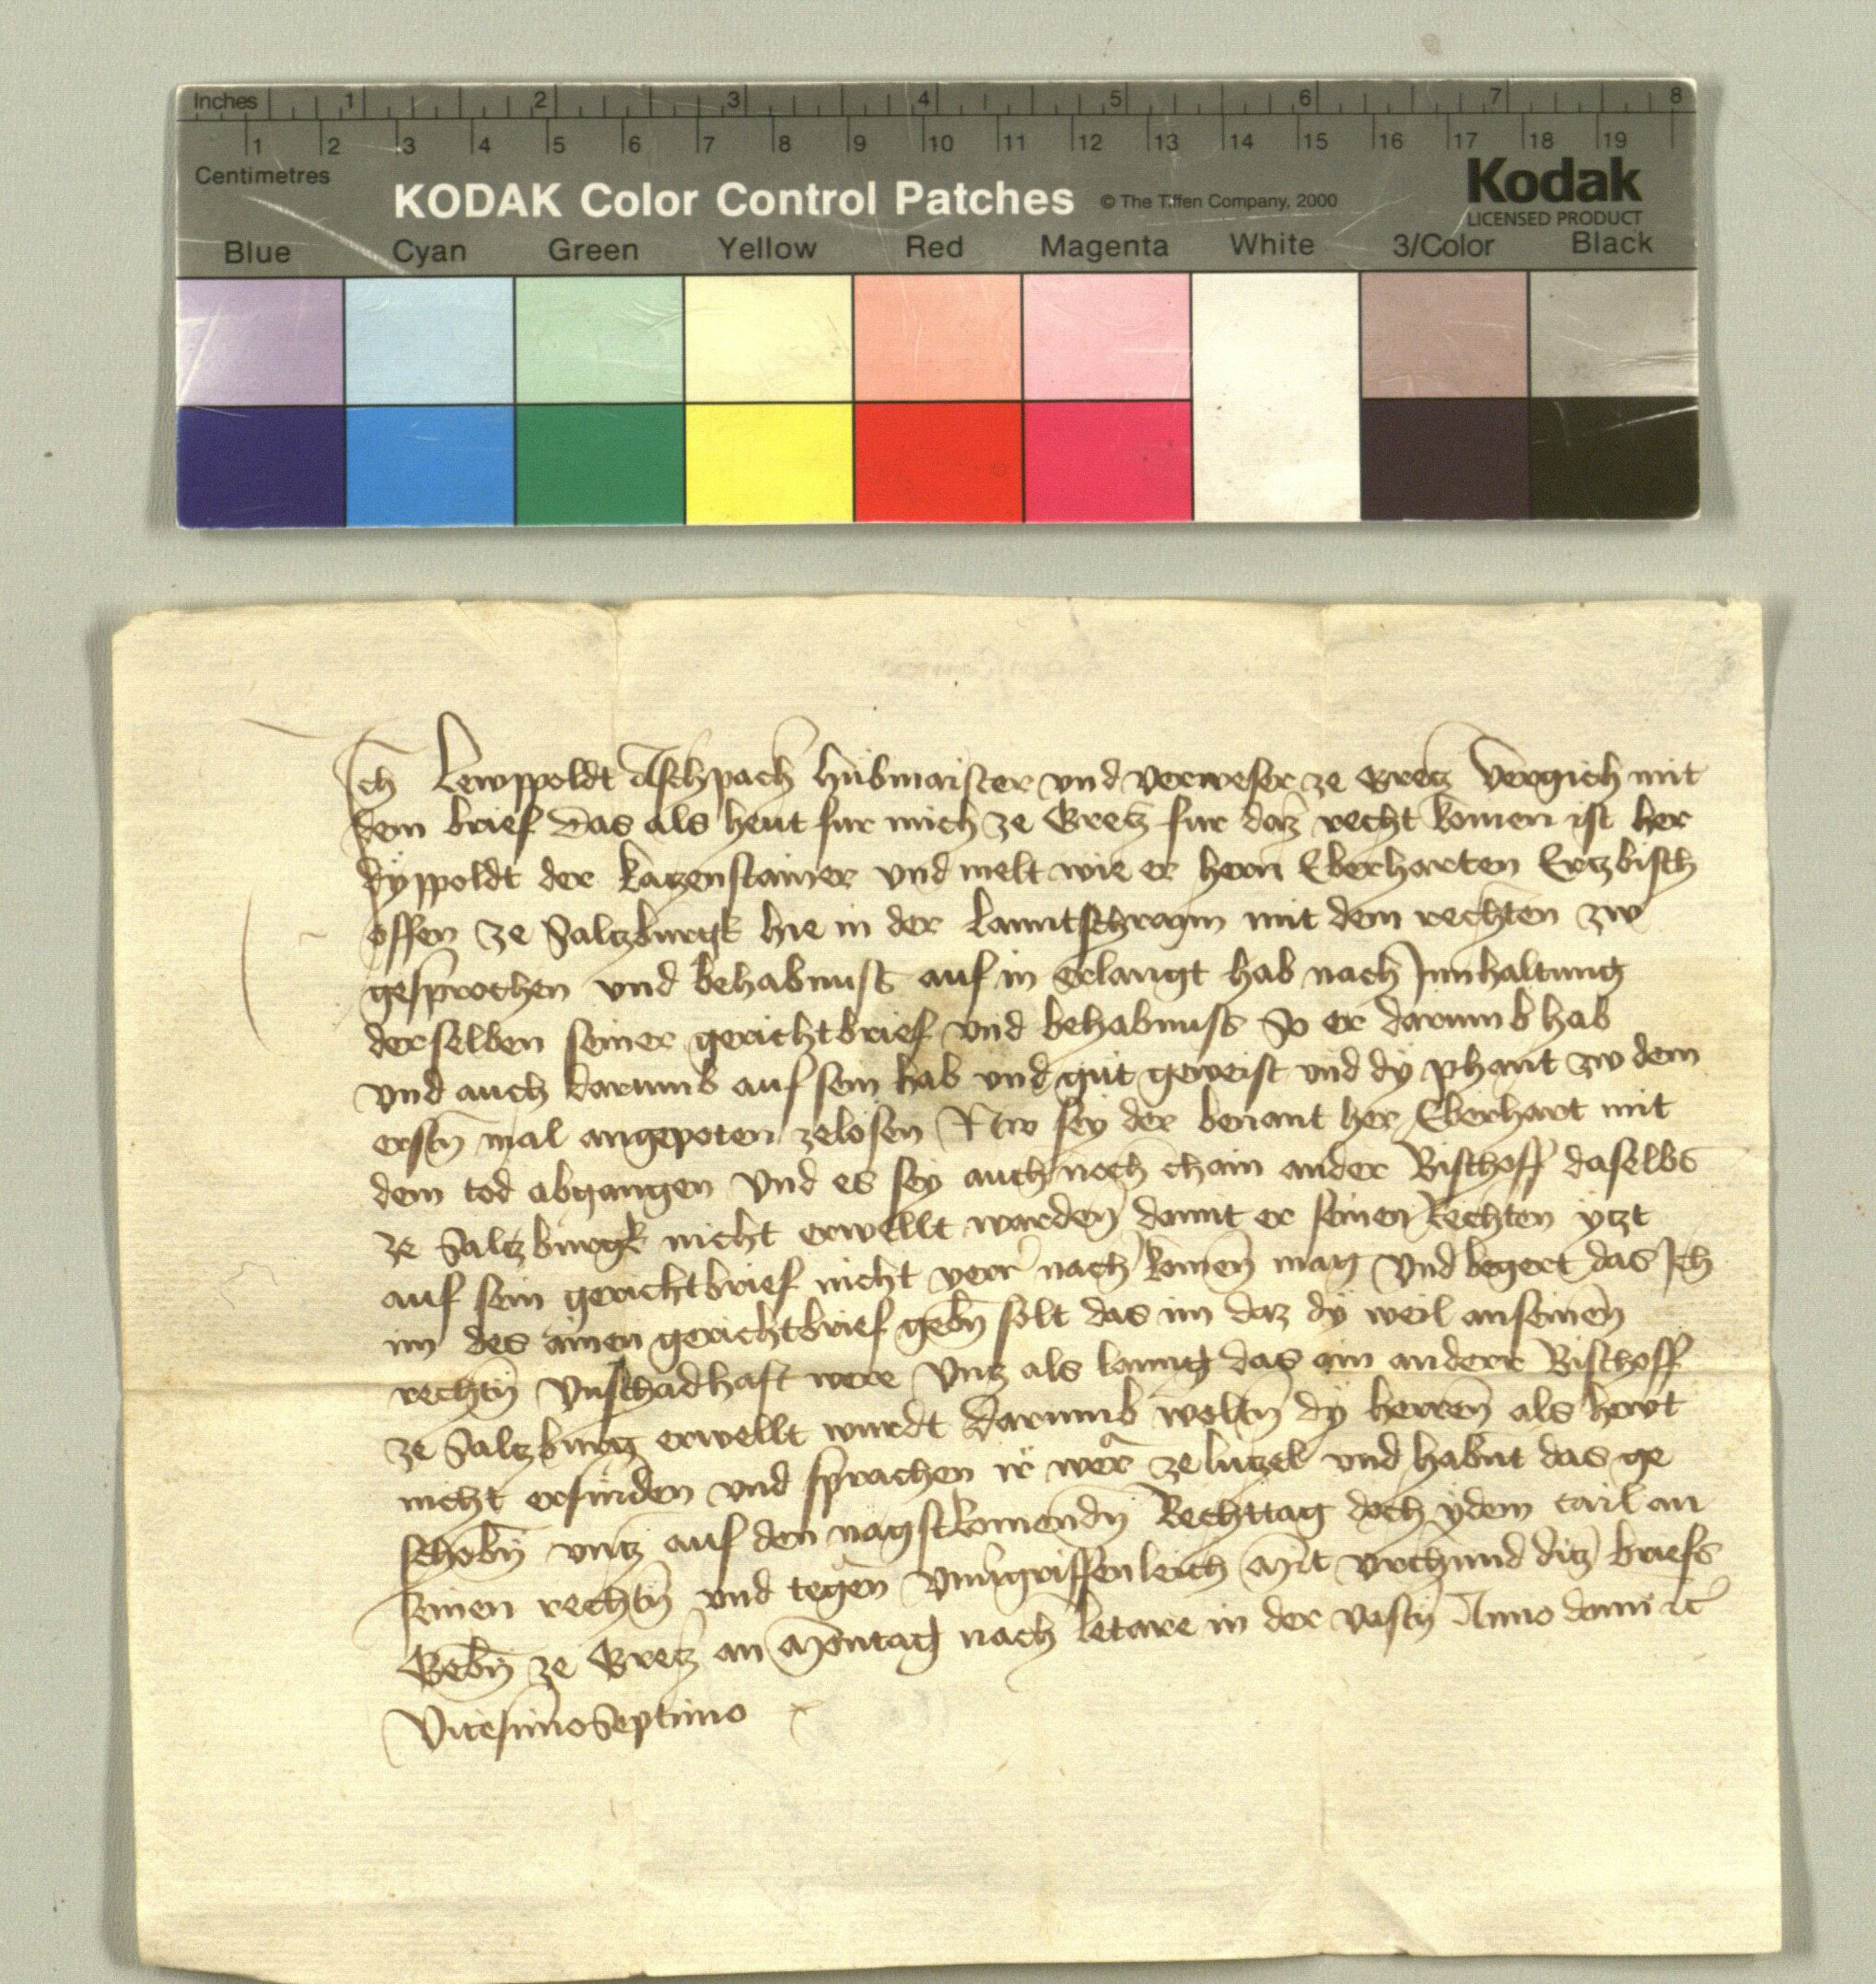 Inches 1 2 3 4 5 6 7 8
1 2 3 4 5 6 7 8 9 10 11 12 13 14 15 16 17 18 19
Centimetres
KODAK Color Control Patches © The Tiffen Company, 2000 Kodak
LICENSED PRODUCT
Blue Cyan Green Yellow Red Magenta White 3/Color Black
Ich Lewppoldt Aschpach hubmaister vnd verweser ze Gretz vergich mit
dem brief das als heut fur mich ze Gretz fur daz recht komen ist her
dyppoldt der katzenstainer vnd melt wie er hern Eberharten Ertzbisch
offen ze Saltzburgk hie in der lanntschrann mit dem rechten zw
gesprochen vnd behabnuss auf in erlangt hab nach Innhaltung
derselben seiner gerichtbrief vnd behabnuss So er darumb hab
vnd auch darumb auf sein hab vnd gut geweist vnd dy phant zw dem
erstn mal angepoten zelosen Nw sey der benant her Eberhart mit
dem tod abgangen Vnd es sey auch noch chain ander Bischoff daselbs
ze Saltzburgk nicht erwellt warden damit er seinen Rechten ytzt
auf sein gerichtbrief nicht verr nach komen mag Vnd begert das Ich
im des ainen gerichtbrief gebn solt das im daz dy weil anseinen
rechtn Vnschadhaft were Vntz als lanng das ain anderr Bischoff
ze Saltzburg erwellt wurdt Darumb woltn dy herren als hewt
nicht erfinden vnd sprachen ir wer ze lutzel vnd habnt das ge
schobn vntz auf den nagstkomendn Rechttag doch ydem tail an
seinen rechtn vnd tegen Vnuergriffenleich Mit vrchund ditz briefs
Gebn ze Gretz an Montag nach letare in der vastn Anno domi etc
Vicesimoseptimo